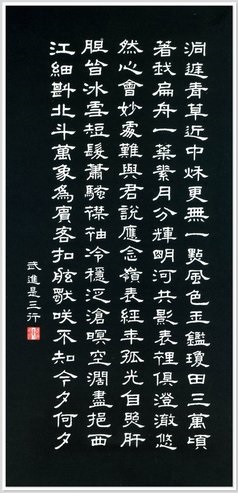 洞庭青草近中秋更無一點風色玉鑑瓊田三萬頃
著我扁舟一葉素月分輝明河共影表裡俱澄澈悠
然心會妙處難與君說應念嶺表經年孤光自照肝
胆皆冰雪短髮蕭騷襟袖冷穩泛滄溟空闊盡挹西
江細斟北斗萬象為賓客扣舷歌咲不知今夕何夕
武進是三行